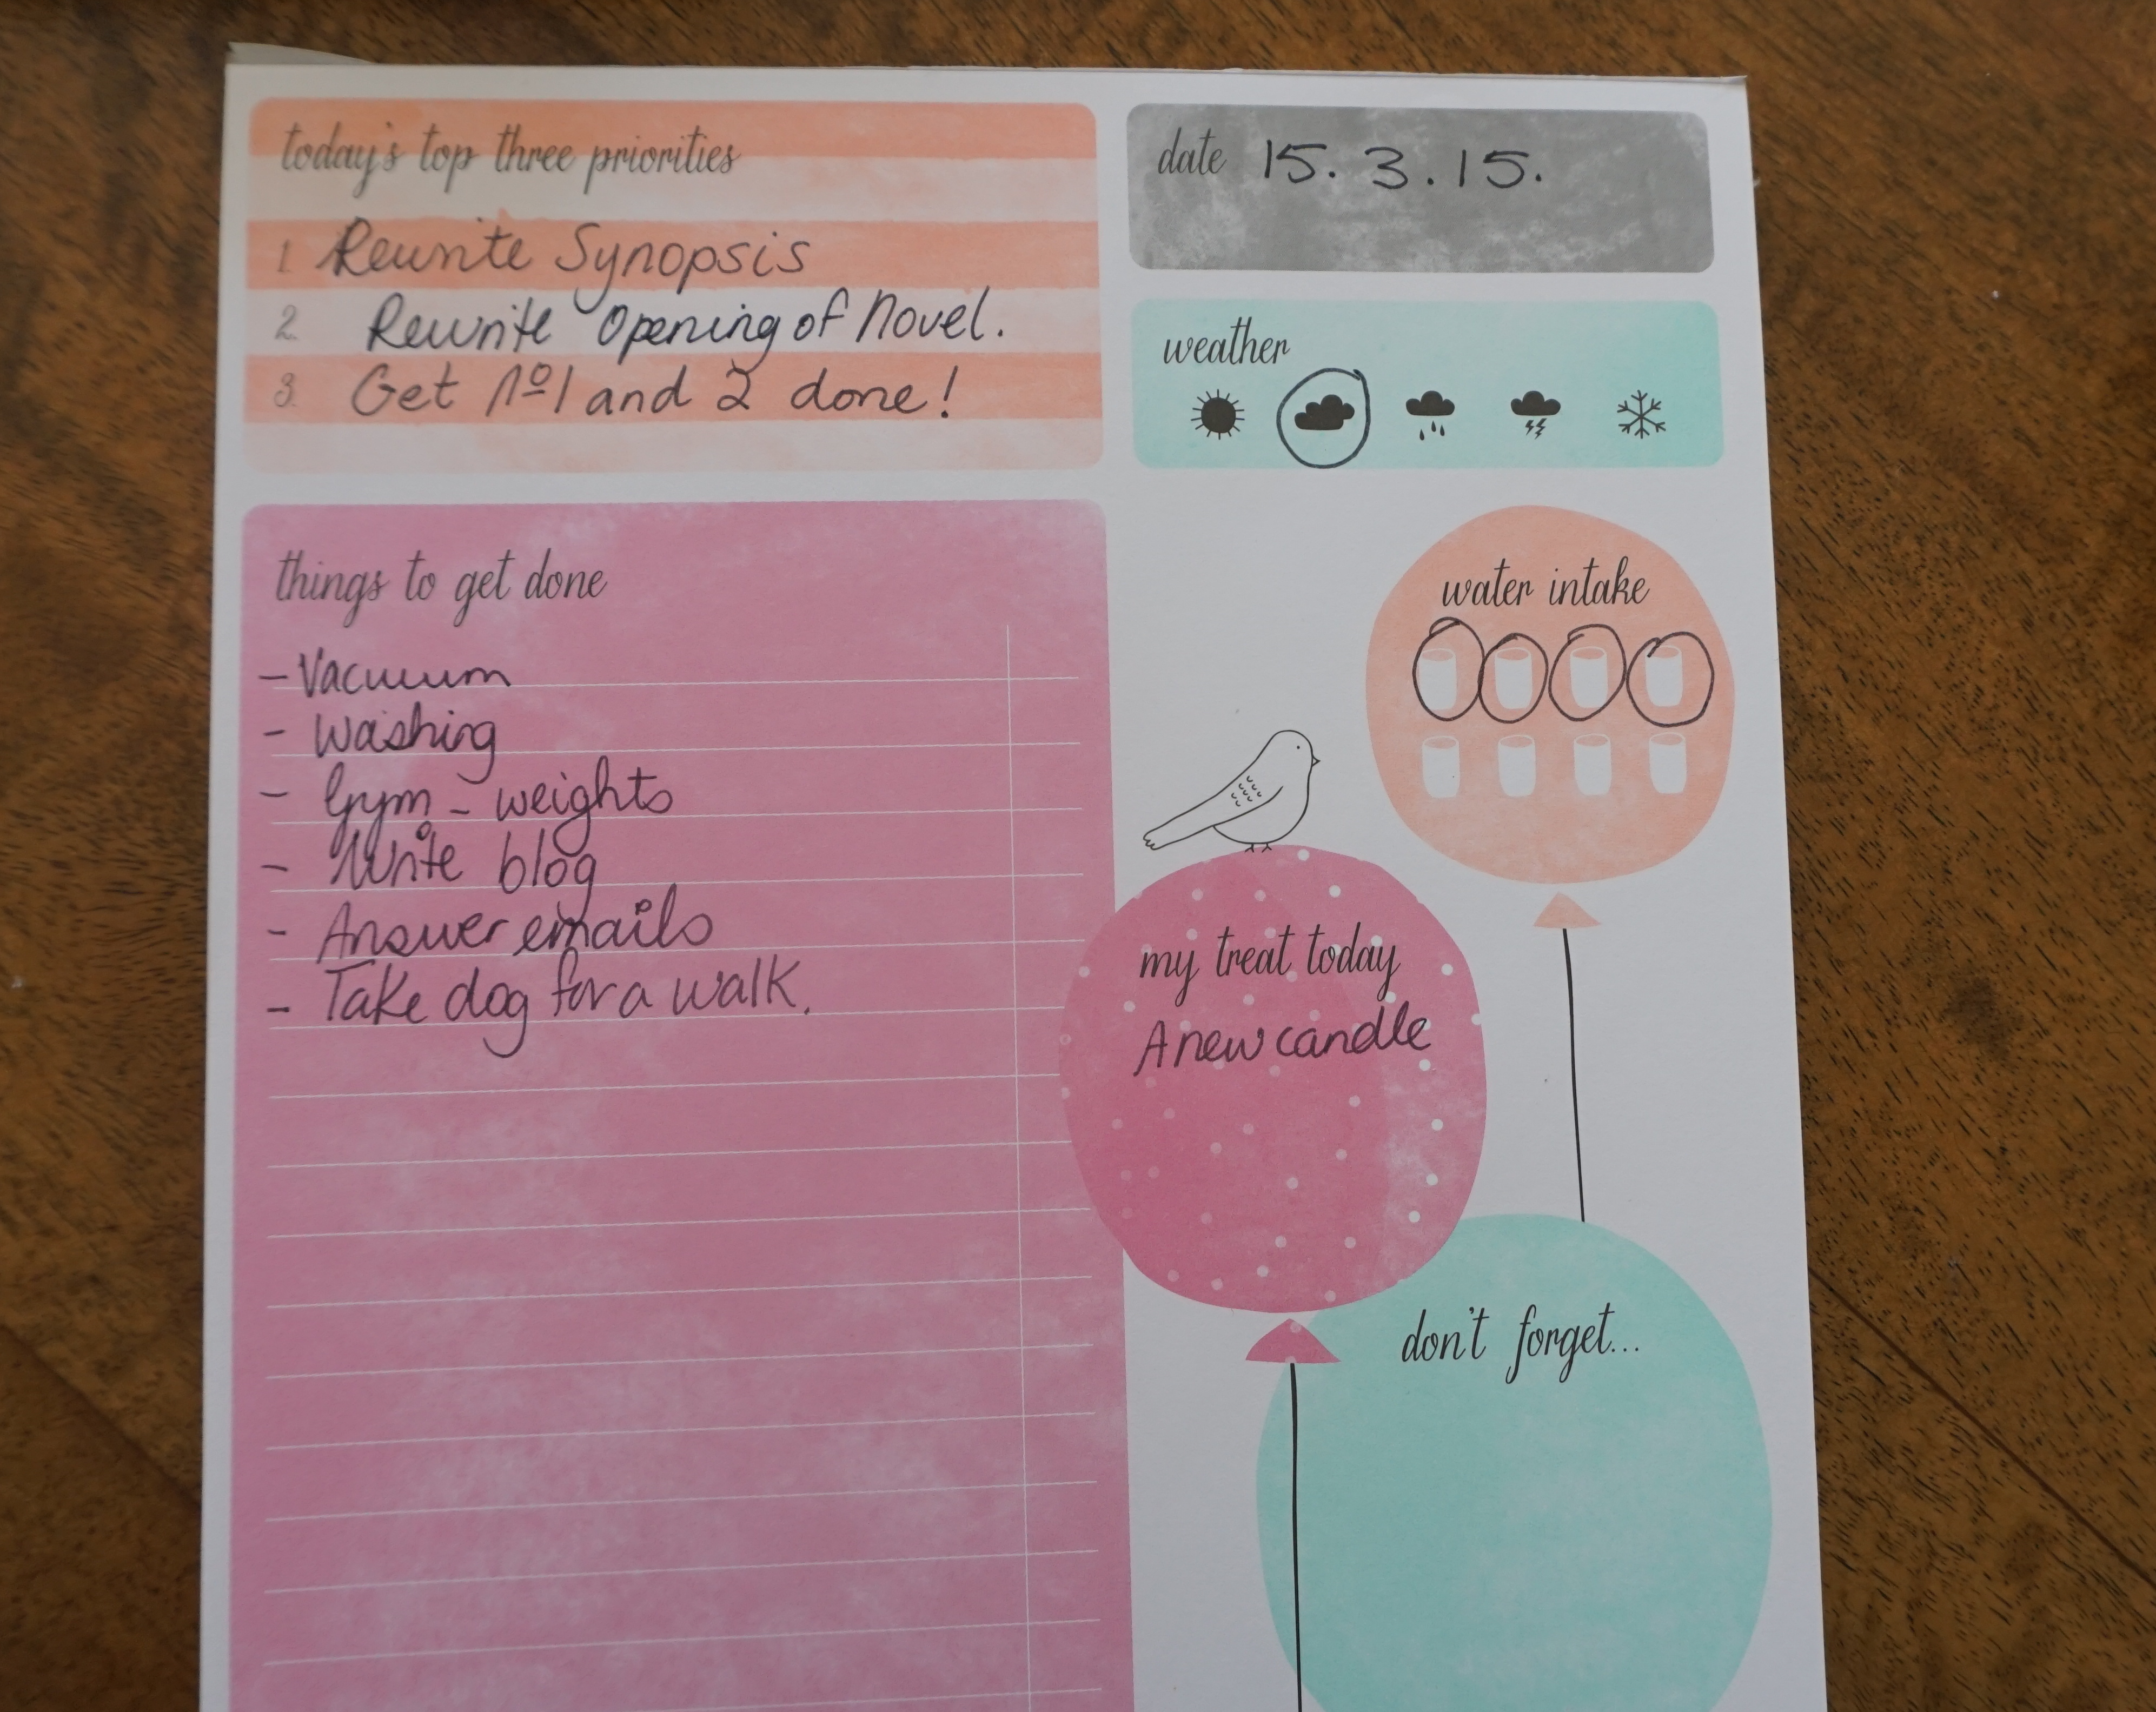 today's top three priorities
1. Rewrite Synopsis
2. Rewrite Opening of Novel.
3. Get Nº1 and 2 done!
date 15. 3. 15.
weather
things to get done
- Vacuum
- Washing
- Gym - weights
- Write blog
- Answer emails
- Take dog for a walk.
water intake
my treat today
A new candle
don't forget...